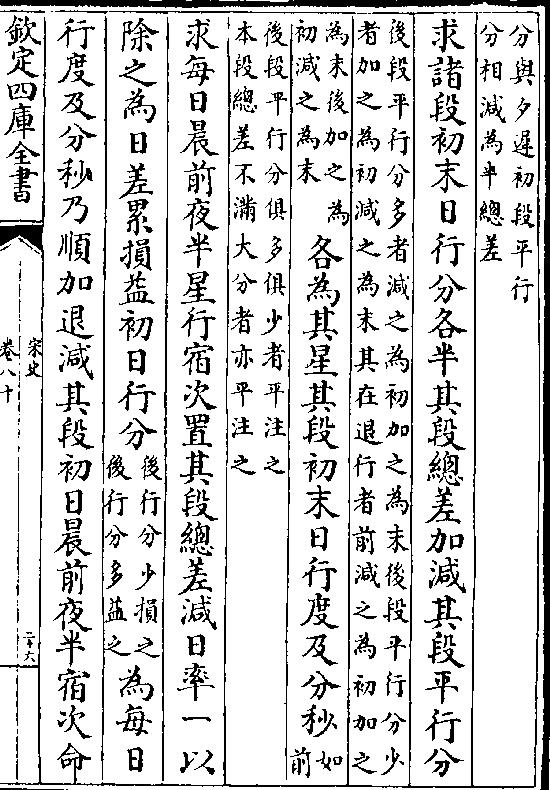 分與夕遲初段平行
分相減為半總差
求諸段初末日行分各半其段總差加減其段平行分
後段平行分多者減之為初加之為末後段平行分少
者加之為初減之為末其在退行者前減之為初加之
為末後加之為
初減之為末
各為其星其段初末日行度及分秒
如
前
後段平行分俱多俱少者平注之
本段總差不滿大分者亦平注之
求每日晨前夜半星行宿次置其段總差減日率一以
除之為日差累損益初日行分
後行分少損之
後行分多益之
為每日
行度及分秒乃順加退減其段初日晨前夜半宿次命
欽定四庫全書
宋史
卷八十
二十六